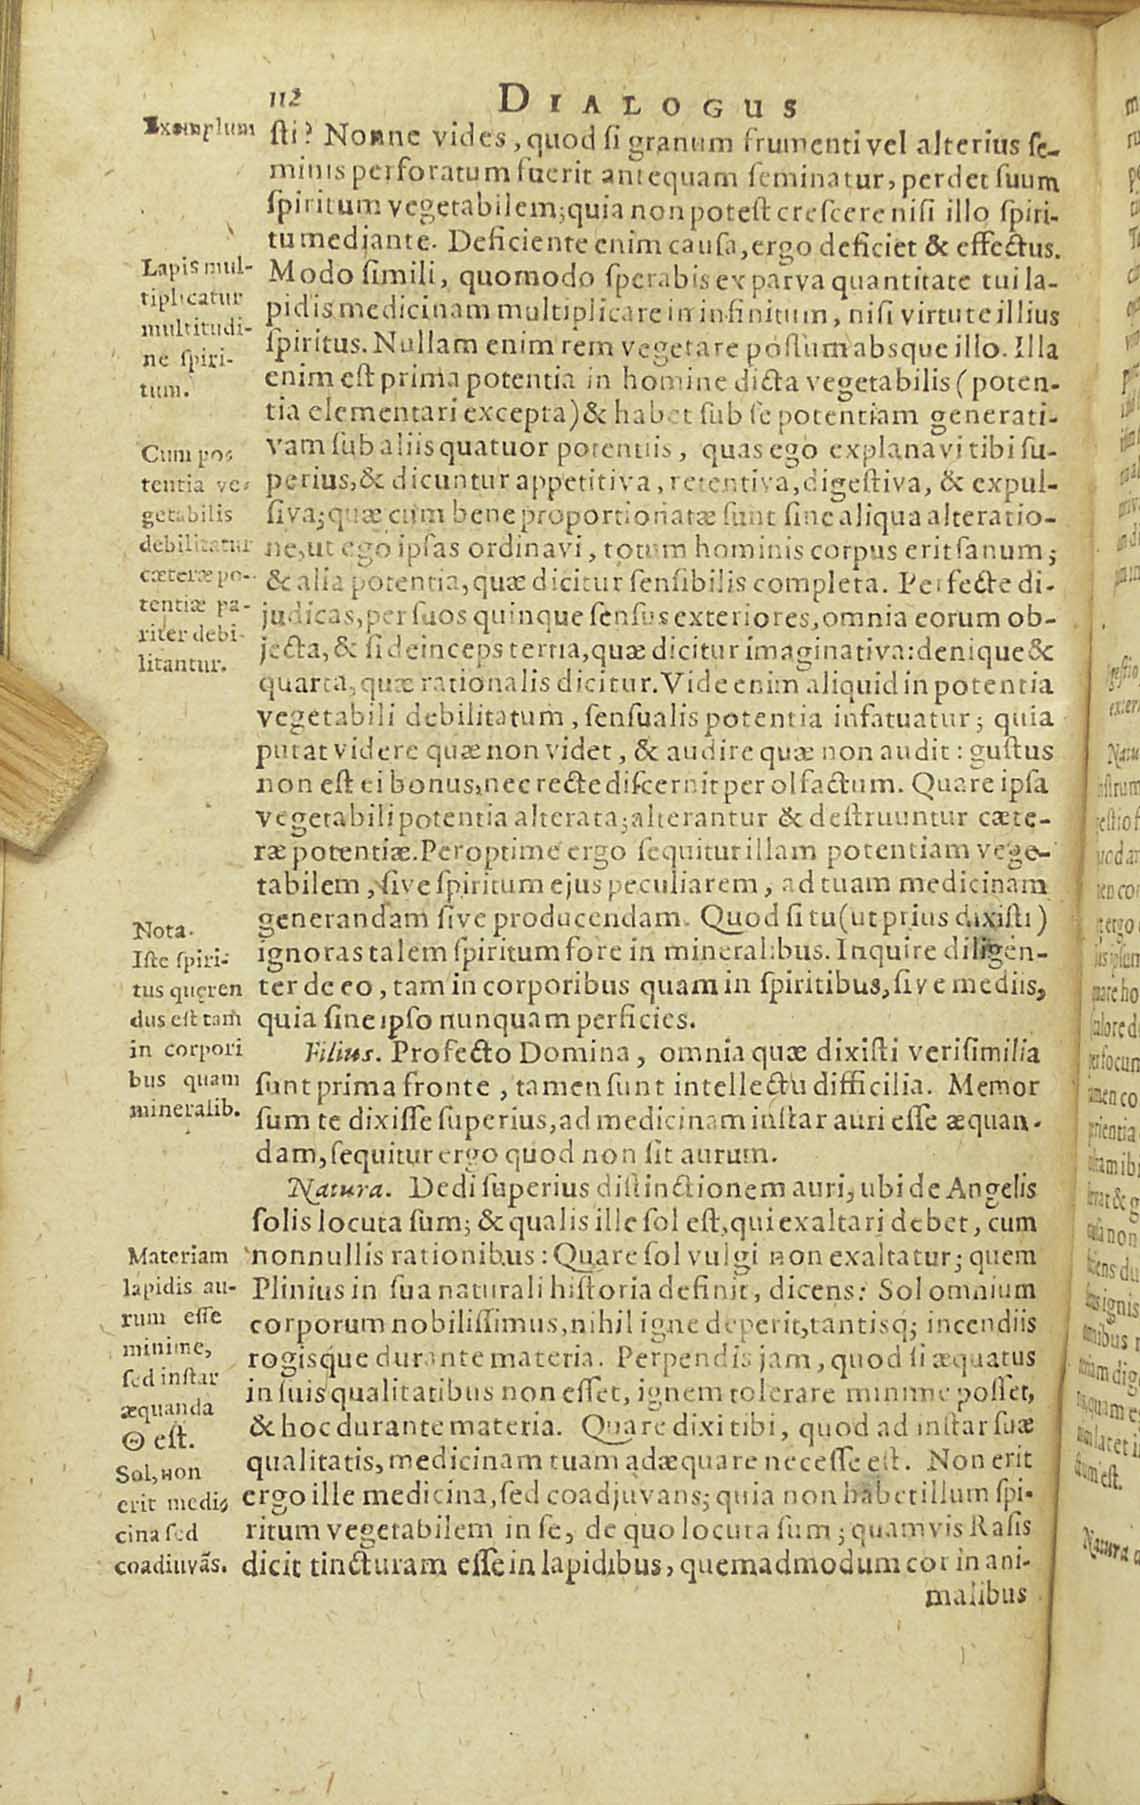 112 DIALOGUS
Exemplum
ſti? Nonne vides, quod ſi granum frumenti vel alterius ſe-
minis perforatum fuerit antequam ſeminatur, perdet ſuum
ſpiritum vegetabilem; quia non poteſt creſcere niſi illo ſpiri-
tu mediante. Deficiente enim cauſa, ergo deficiet & effectus.
Modo ſimili, quomodo ſperabis ex parva quantitate tui la-
pidis medicinam multiplicare in infinitum, niſi virtute illius
ſpiritus. Nullam enim rem vegetare poſſum absque illo. Illa
enim eſt prima potentia in homine dicta vegetabilis (poten-
tia elementari excepta) & habet ſub ſe potentiam generati-
vam ſub aliis quatuor potentiis, quas ego explanavi tibi ſu-
perius, & dicuntur appetitiva, retentiva, digeſtiva, & expul-
ſiva; quæ cum bene proportionatæ ſunt ſine aliqua alteratio-
ne, ut ego ipſas ordinavi, totum hominis corpus erit ſanum;
& alia potentia, quæ dicitur ſenſibilis completa. Perfecte di-
judicas, per ſuos quinque ſenſus exteriores, omnia eorum ob-
jecta, & ſi deinceps tertia, quæ dicitur imaginativa: denique &
quarta, quæ rationalis dicitur. Vide enim aliquid in potentia
vegetabili debilitatum, ſenſualis potentia infatuatur; quia
putat videre quæ non videt, & audire quæ non audit: guſtus
non eſt ei bonus, nec recte diſcernit per olfactum. Quare ipſa
vegetabili potentia alterata; alterantur & deſtruuntur cæte-
ræ potentiæ. Peroptime ergo ſequitur illam potentiam vege-
tabilem, ſive ſpiritum ejus peculiarem, ad tuam medicinam
generandam ſive producendam. Quod ſi tu (ut prius dixiſti)
ignoras talem ſpiritum fore in mineralibus. Inquire diligen-
ter de eo, tam in corporibus quam in ſpiritibus, ſive mediis,
quia ſine ipſo nunquam perficies.
Filius. Profecto Domina, omnia quæ dixiſti veriſimilia
ſunt prima fronte, tamen ſunt intellectu difficilia. Memor
ſum te dixiſſe ſuperius, ad medicinam inſtar auri eſſe æquan-
dam, ſequitur ergo quod non ſit aurum.
Natura. Dedi ſuperius diſtinctionem auri, ubi de Angelis
ſolis locuta ſum; & qualis ille ſol eſt, qui exaltari debet, cum
nonnullis rationibus: Quare ſol vulgi non exaltatur; quem
Plinius in ſua naturali hiſtoria definit, dicens: Sol omnium
corporum nobiliſſimus, nihil igne deperit, tantisq; incendiis
rogisque durante materia. Perpendis jam, quod ſi æquatus
in ſuis qualitatibus non eſſet, ignem tolerare minime poſſet,
& hoc durante materia. Quare dixi tibi, quod ad inſtar ſuæ
qualitatis, medicinam tuam adæquare neceſſe eſt. Non erit
ergo ille medicina, ſed coadjuvans; quia non habet illum ſpi-
ritum vegetabilem in ſe, de quo locuta ſum; quamvis Raſis
dicit tincturam eſſe in lapidibus, quemadmodum cor in ani-
malibus
Lapis mul-
tiplicatur
multitudi-
ne ſpiri-
tum.
Cum po-
tentia ve-
getabilis
debilitatur
cæteræ po-
tentiæ pa-
riter debi-
litantur.
Nota.
Iſte ſpiri-
tus queren
dus eſt tam
in corpori
bus quam
mineralib.
Materiam
lapidis au-
rum eſſe
minime,
ſed inſtar
æquanda
☉ eſt.
Sol, non
erit medi-
cina ſed
coadiuvãs.